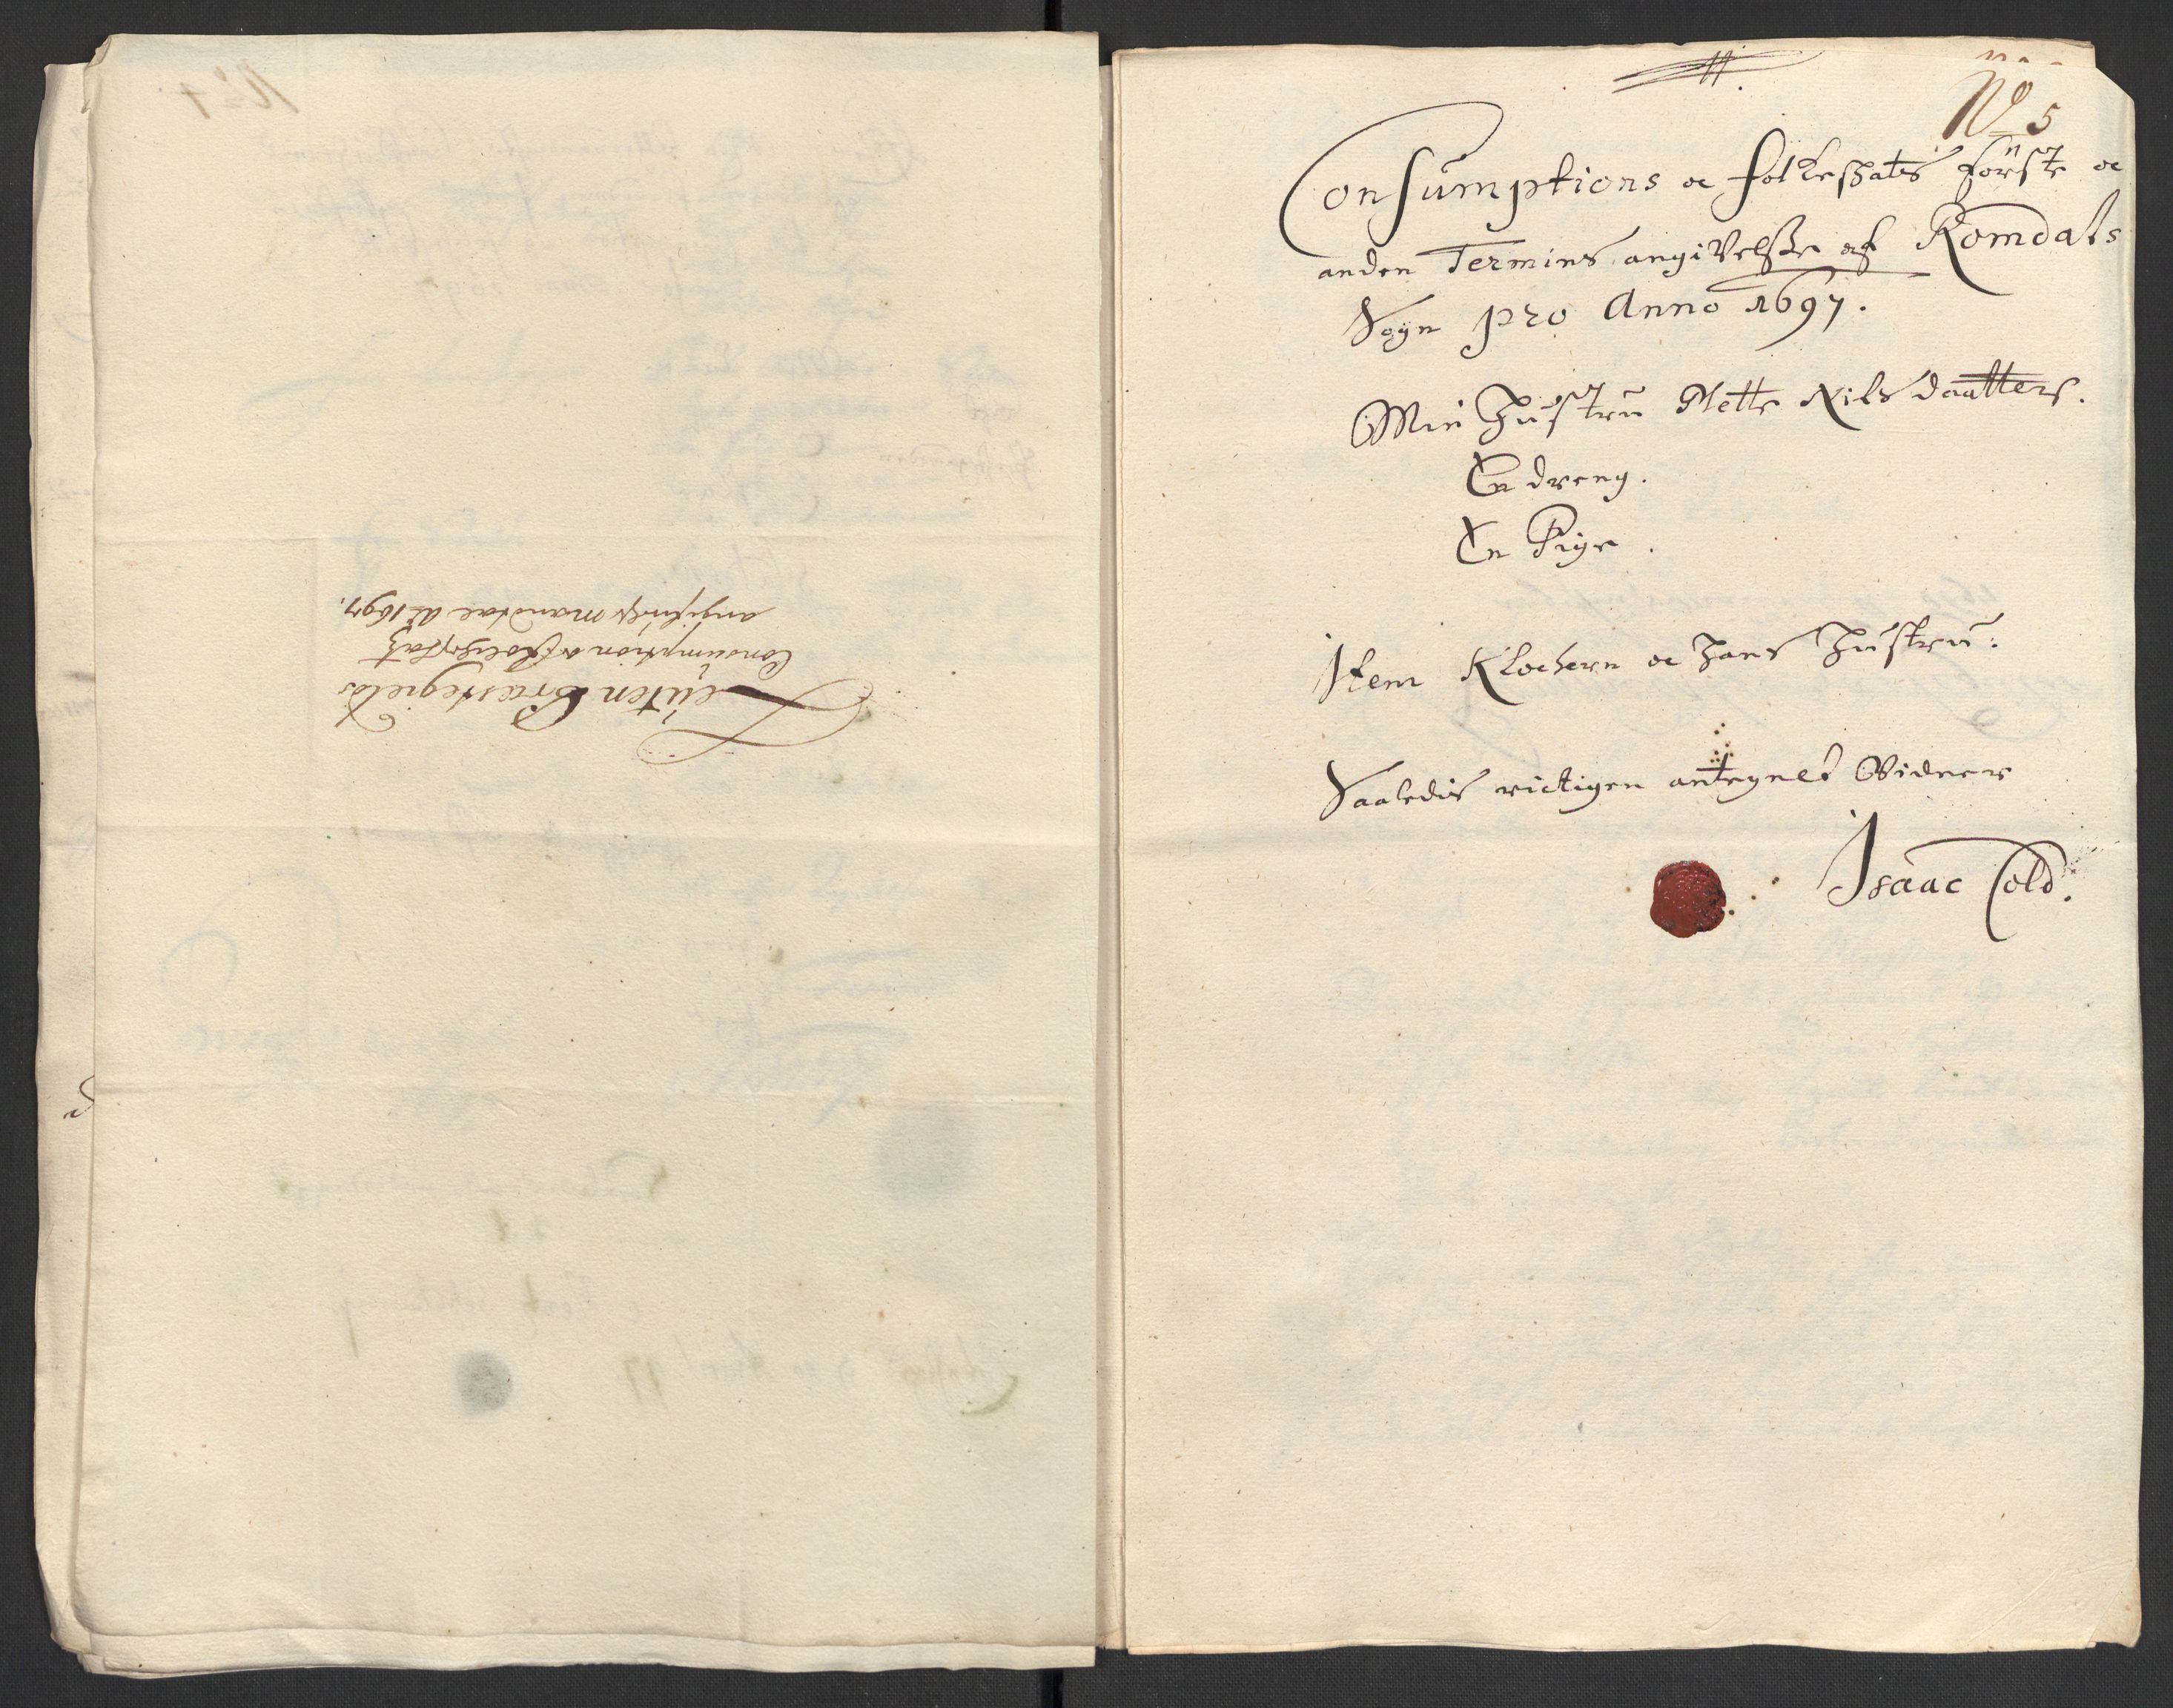 Leüten Præstegields
Consumption og folcheschatz
mandtal Ao 1697.
No 5
Consumptions oc folkeskatts förste oc
anden Termins angivelse af Romdals
Sogn pro Anno 1697.
Min Hustru Mette Nilsdaatter.
En dreng.
En Pige.
Item Klochern oc hans Hustru.
Saaledis rictigen antegnet Vidner
Isaac Cold.